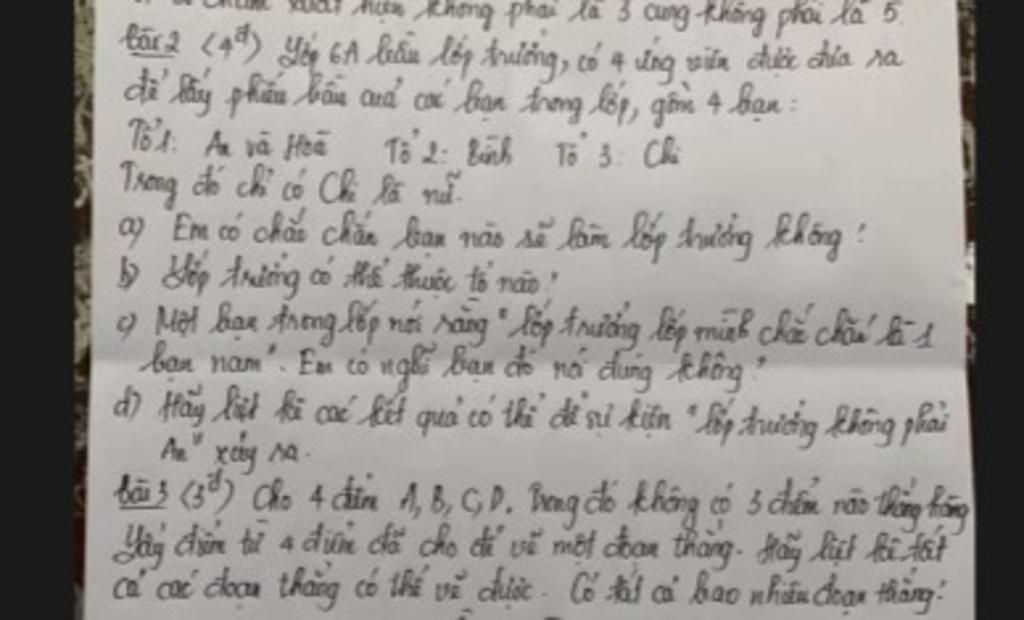 chấm xuất hiện không phải là 3 cũng không phải là 5.
Bài 2 (4đ) Lớp 6A bầu lớp trưởng, có 4 ứng viên được đưa ra
để lấy phiếu bầu của các bạn trong lớp, gồm 4 bạn:
Tổ 1: An và Hoà Tổ 2: Bình Tổ 3: Chi
Trong đó chỉ có Chi là nữ.
a) Em có chắc chắn bạn nào sẽ làm lớp trưởng không?
b) Lớp trưởng có thể thuộc tổ nào?
c) Một bạn trong lớp nói rằng "lớp trưởng lớp mình chắc chắn là 1
bạn nam". Em có nghĩ bạn đó nói đúng không?
d) Hãy liệt kê các kết quả có thể để sự kiện "lớp trưởng không phải
An" xảy ra.
Bài 3 (3đ) Cho 4 điểm A, B, C, D. Trong đó không có 3 điểm nào thẳng hàng
Lấy điểm từ 4 điểm đã cho để vẽ một đoạn thẳng. Hãy liệt kê tất
cả các đoạn thẳng có thể vẽ được. Có tất cả bao nhiêu đoạn thẳng?